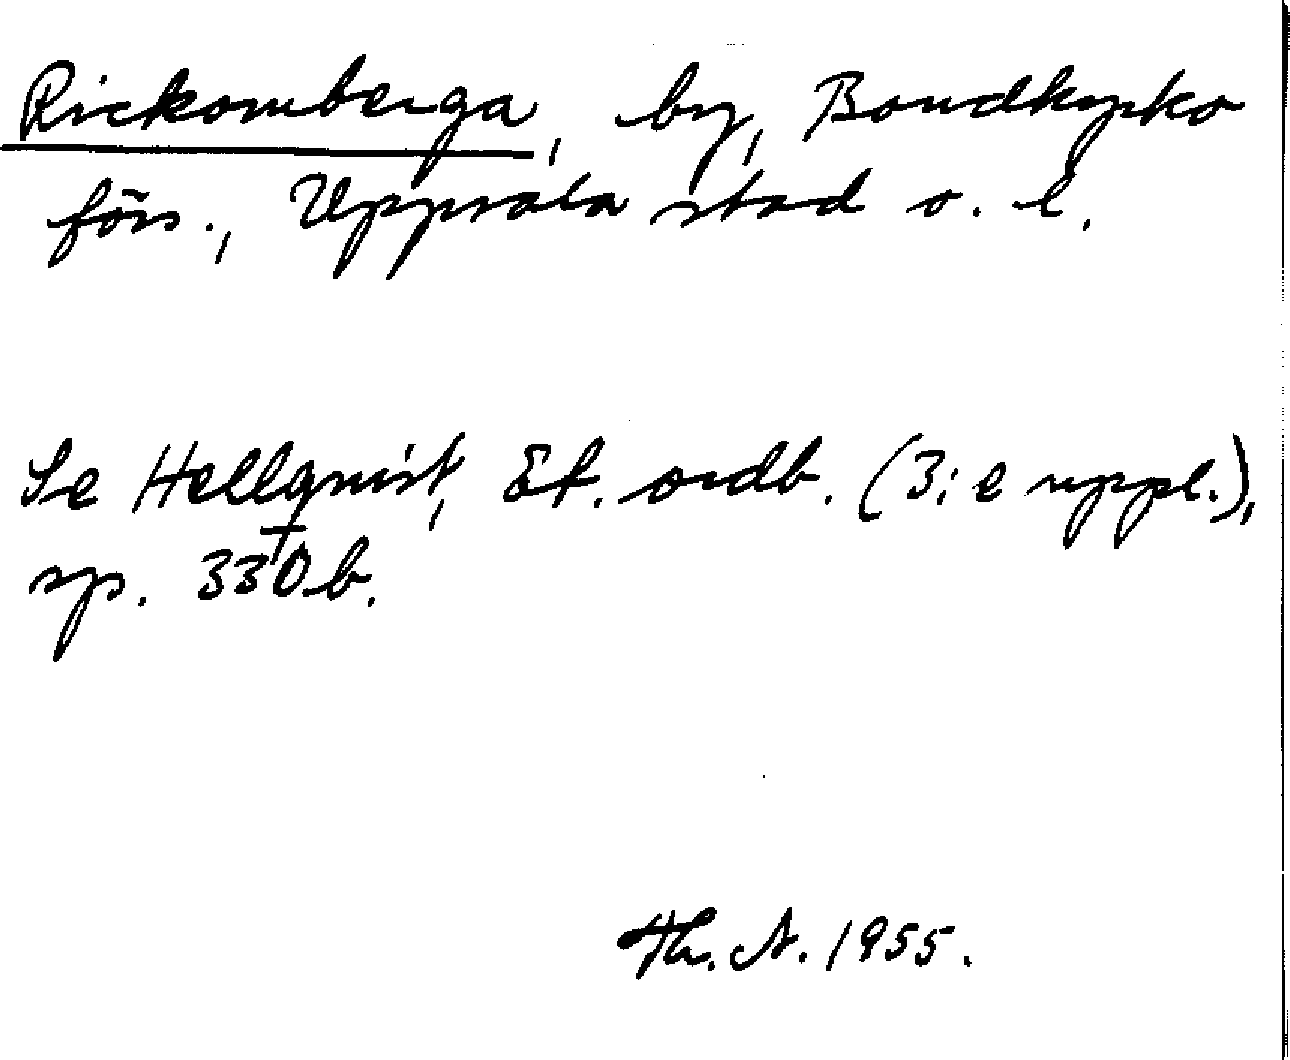 Rickomberga, by, Bondkyrko
förs., Uppsala stad o. l.
Se Hellquist, Et. ordb. (3:e uppl.),
sp. 330 b.
Th. A. 1955.